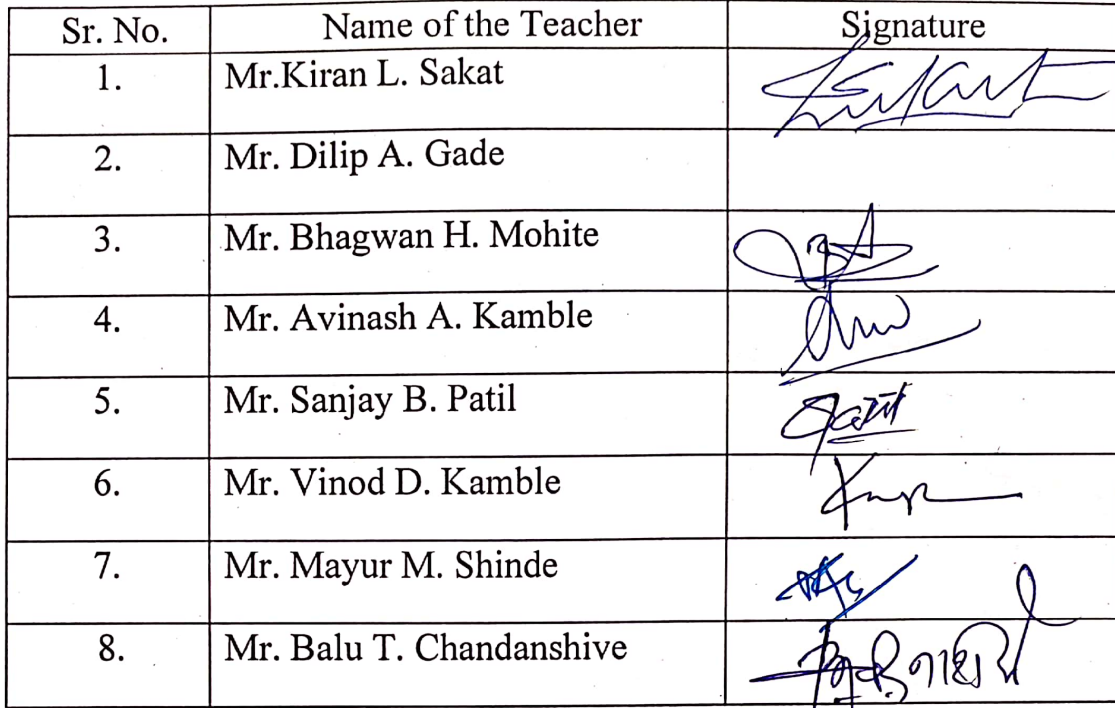 Sr. No. Name of the Teacher Signature
1. Mr.Kiran L. Sakat
2. Mr. Dilip A. Gade
3. Mr. Bhagwan H. Mohite
4. Mr. Avinash A. Kamble
5. Mr. Sanjay B. Patil
6. Mr. Vinod D. Kamble
7. Mr. Mayur M. Shinde
8. Mr. Balu T. Chandanshive